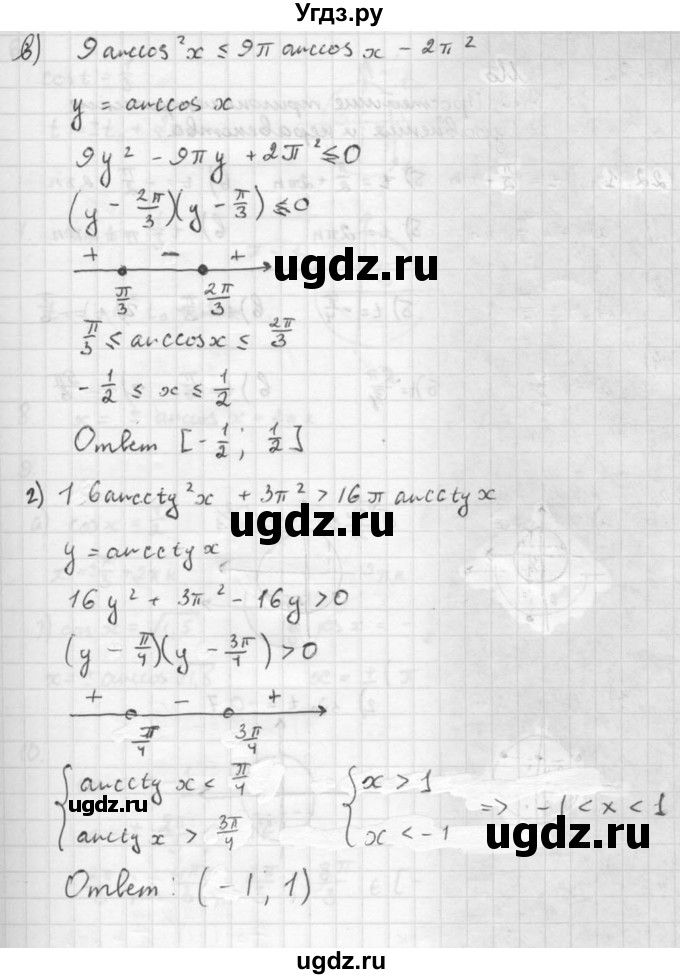 Угдз.ру
в) 9 arccos²x ≤ 9π arccos x − 2π²
y = arccos x
9y² − 9πy + 2π² ≤ 0
(y − 2π/3)(y − π/3) ≤ 0
+ − +
ugdz.ru
π/3 2π/3
π/3 ≤ arccos x ≤ 2π/3
− 1/2 ≤ x ≤ 1/2
Ответ [− 1/2 ; 1/2]
г) 16 arcctg²x + 3π² > 16 π arcctg x
ugdz.ru
y = arcctg x
16y² + 3π² − 16y > 0
(y − π/4)(y − 3π/4) > 0
+ − +
π/4 3π/4
{ arcctg x < π/4 { x > 1
ugdz.ru => −1 < x < 1
arcctg x > 3π/4 x < −1
ugdz.ru
Ответ: (−1, 1)
ugdz.ru